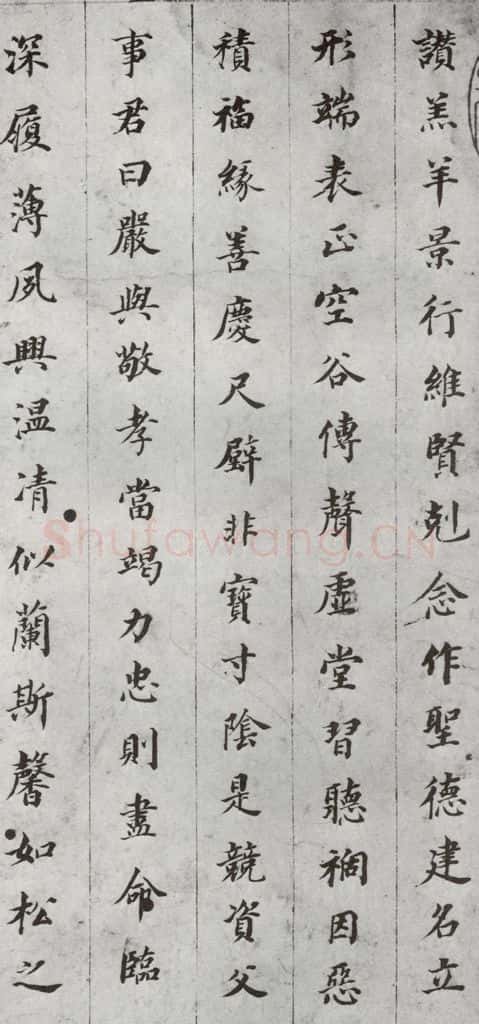 讃羔羊景行維賢剋念作聖德建名立
形端表正空谷傳聲虛堂習聽禍因惡
積福緣善慶尺璧非寶寸陰是競資父
事君曰嚴與敬孝當竭力忠則盡命臨
深履薄夙興温凊似蘭斯馨如松之
Shufawang.CN